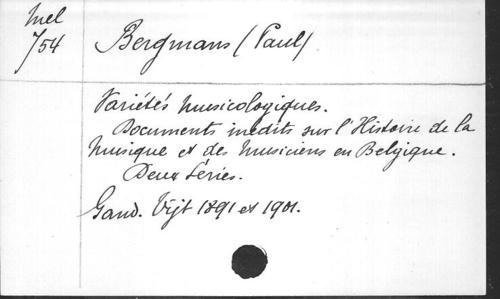 Mel
754
Bergmans (Paul)
Variétés musicologiques.
Documents inédits sur l'Histoire de la
Musique et des Musiciens en Belgique.
Deux Séries.
Gand. Vijt 1891 et 1901.